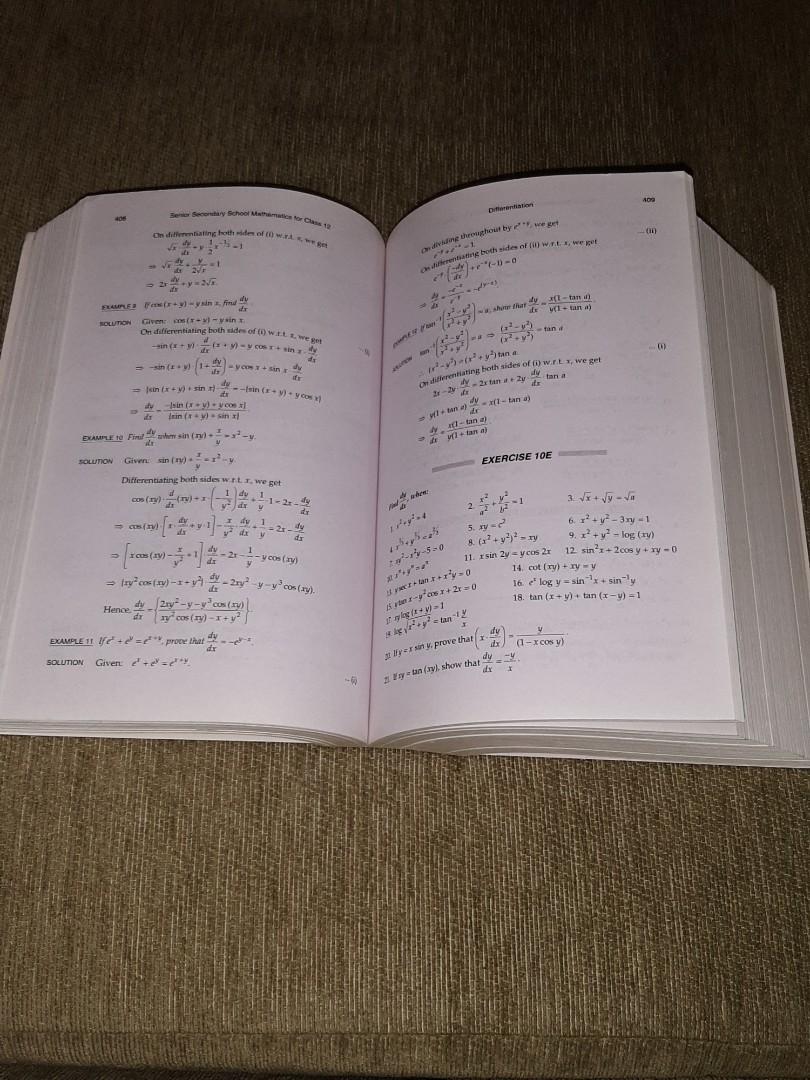 408
Senior Secondary School Mathematics for Class 12
On differentiating both sides of (i) w.r.t. x, we get
√x · dy/dx + y · 1/2 x^(-1/2) = 1
⇒ √x · dy/dx + y/(2√x) = 1
⇒ 2x dy/dx + y = 2√x.
EXAMPLE 9 If cos (x + y) = y sin x, find dy/dx.
SOLUTION Given: cos (x + y) = y sin x. ...(i)
On differentiating both sides of (i) w.r.t. x, we get
−sin (x + y) · d/dx (x + y) = y cos x + sin x · dy/dx
⇒ −sin (x + y) · (1 + dy/dx) = y cos x + sin x · dy/dx
⇒ {sin (x + y) + sin x} · dy/dx = −{sin (x + y) + y cos x}
⇒ dy/dx = −{sin (x + y) + y cos x}/{sin (x + y) + sin x}
EXAMPLE 10 Find dy/dx when sin (xy) + x/y = x² − y.
SOLUTION Given: sin (xy) + x/y = x² − y.
Differentiating both sides w.r.t. x, we get
cos (xy) · d/dx (xy) + x · (−1/y²) dy/dx + 1/y · 1 = 2x − dy/dx
⇒ cos (xy) · [x · dy/dx + y · 1] − x/y² · dy/dx + 1/y = 2x − dy/dx
⇒ [x cos (xy) − x/y² + 1] · dy/dx = 2x − 1/y − y cos (xy)
⇒ {xy² cos (xy) − x + y²} · dy/dx = 2xy² − y − y³ cos (xy).
Hence, dy/dx = {2xy² − y − y³ cos (xy)/xy² cos (xy) − x + y²}.
EXAMPLE 11 If eˣ + eʸ = eˣ⁺ʸ, prove that dy/dx = −eʸ⁻ˣ.
SOLUTION Given: eˣ + eʸ = eˣ⁺ʸ. ...(i)
Differentiation
409
On dividing throughout by eˣ⁺ʸ, we get
e⁻ʸ + e⁻ˣ = 1. ...(ii)
On differentiating both sides of (ii) w.r.t. x, we get
e⁻ʸ · (−dy/dx) + e⁻ˣ(−1) = 0
⇒ dy/dx = −e⁻ˣ/e⁻ʸ = −e^(y−x).
EXAMPLE 12 If tan⁻¹((x² − y²)/(x² + y²)) = a, show that dy/dx = x(1 − tan a)/y(1 + tan a).
SOLUTION tan⁻¹((x² − y²)/(x² + y²)) = a ⇒ (x² − y²)/(x² + y²) = tan a
∴ (x² − y²) = (x² + y²) tan a. ...(i)
On differentiating both sides of (i) w.r.t. x, we get
2x − 2y · dy/dx = 2x tan a + 2y · dy/dx · tan a
⇒ y(1 + tan a) dy/dx = x(1 − tan a)
⇒ dy/dx = x(1 − tan a)/y(1 + tan a).
EXERCISE 10E
Find dy/dx, when:
1. x² + y² = 4 2. x²/a² + y²/b² = 1 3. √x + √y = √a
5. xy = c² 6. x² + y² − 3xy = 1
8. (x² + y²)² = xy 9. x² + y² = log (xy)
10. xⁿ + yⁿ = aⁿ 11. x sin 2y = y cos 2x 12. sin²x + 2cos y + xy = 0
13. y sec x + tan x + x²y = 0 14. cot (xy) + xy = y
15. y tan x − y² cos x + 2x = 0 16. eˣ log y = sin⁻¹x + sin⁻¹y
17. xy log (x + y) = 1 18. tan (x + y) + tan (x − y) = 1
19. log √(x² + y²) = tan⁻¹ y/x
20. If y = x sin y, prove that (x · dy/dx) = y/(1 − x cos y).
21. If xy = tan (xy), show that dy/dx = −y/x.